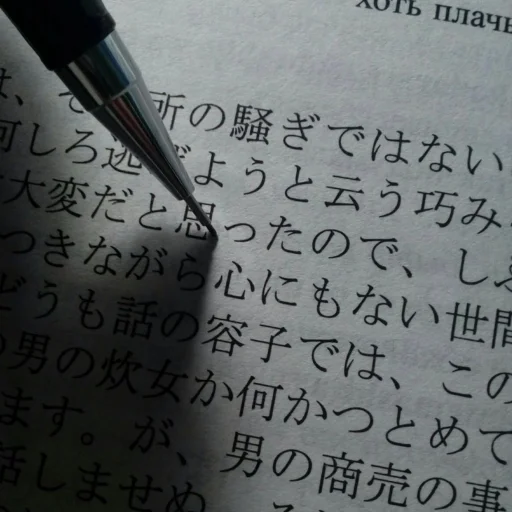 хоть плачь
は、そ 所の騒ぎではない
何しろ逃げようと云う巧み
大変だと思ったので、しぶ
つきながら心にもない世間
どうも話の容子では、この
男の炊女か何かつとめて
ます。が、男の商売の事
話しませぬ